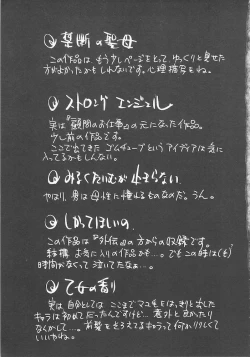 禁断の聖母
この作品は もう少しページをとって ゆっくりと見せた
方がよかったかもしれないです。心理描写もね。
ストロング エンジェル
実は『顧問のお仕事』の元になった作品。
少し前の作品です。
ここで出てきた ゴムチューブというアイディアは気に
入ってるかもしんない。
みるくたいむが止まらない
やはり、男は母性に憧れるものなのだ。うん。
しかってほしいの
この作品は『外伝』の方からの収録です。
結構 お気に入りの作品かも…。でも この時は(も)
時間がなくって泣いてたなぁ…。
乙女の香り
実は自分としては ここまで
キャラは初めてだったんですけど…。意外と良かったり
なんかして…。前髪をそろえてるキャラって何かりりしくて
いいかもね。